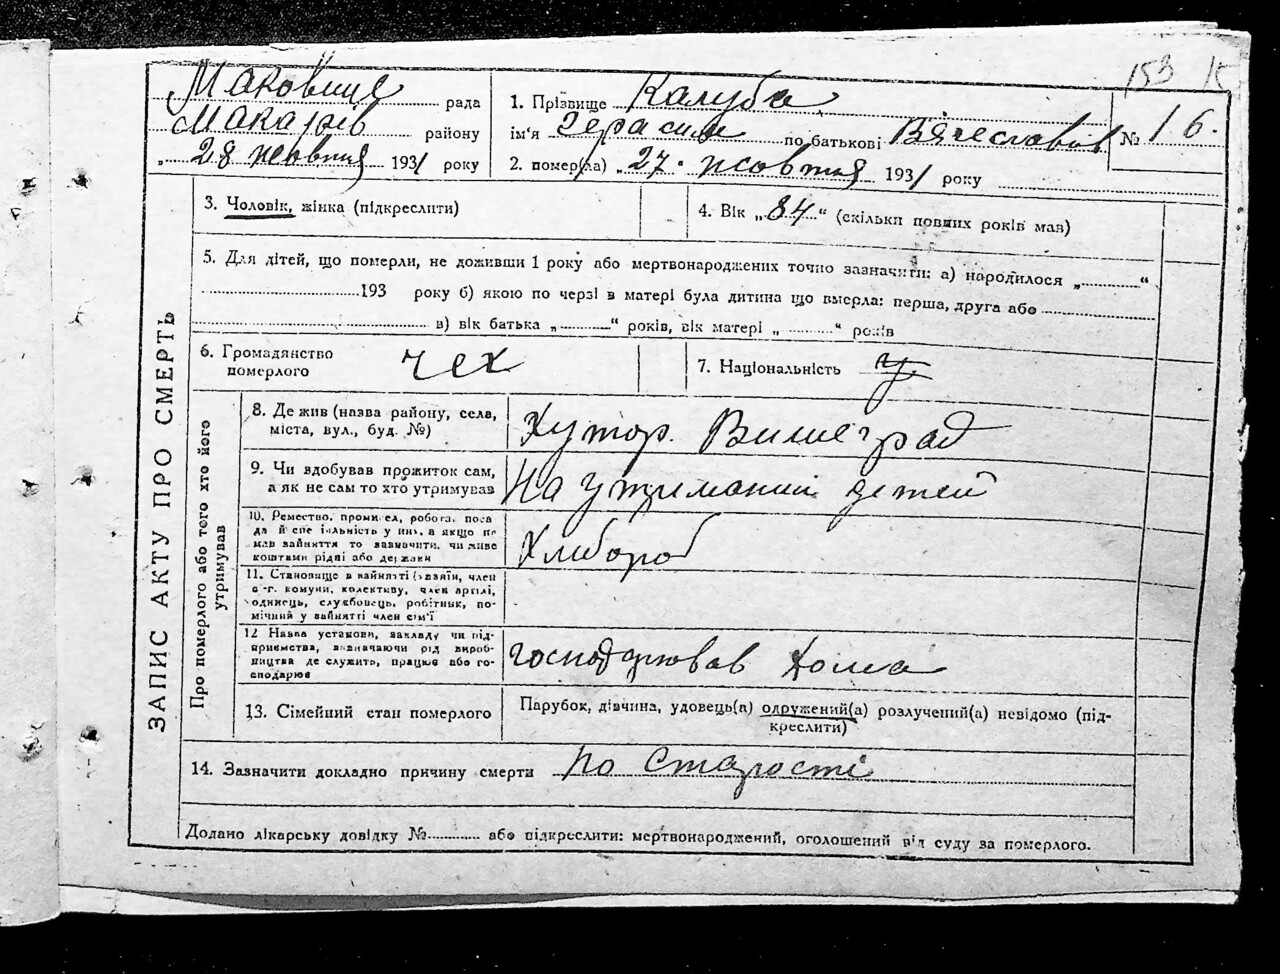 153
Маковище рада
Макарів району
„ 28 жовтня 1931 року
1. Прізвище Калуба
ім'я Герасим по батькові Вячеславов
2. помер(ла) „ 27. жовтня 1931 року
№ 16.
ЗАПИС АКТУ ПРО СМЕРТЬ
3. Чоловік, жінка (підкреслити)
4. Вік „84“ (скільки повних років мав)
5. Для дітей, що померли, не доживши 1 року або мертвонароджених точно зазначити: а) народилося „ “
193 року б) якою по черзі в матері була дитина що вмерла: перша, друга або
в) вік батька „ “ років, вік матері „ “ років
6. Громадянство
померлого
чех
7. Національність у.
Про померлого або того хто його
утримував
8. Де жив (назва району, села,
міста, вул., буд. №)
Хутор. Вишеград
9. Чи здобував прожиток сам,
а як не сам то хто утримував
На утриманий детей
10. Ремество, промисел, робота, поса
да й спеціяльність у них, а якщо не
мав зайняття то зазначити, чи живе
коштами рідні або держави
Хлибороб
11. Становище в зайнятті (хазяїн, член
с-г. комуни, колективу, член артілі,
одинець, службовець, робітник, по-
мічний у зайнятті член сім'ї
12 Назва установи, закладу чи під-
приємства, визначаючи рід вироб-
ництва де служить, працює або го-
сподарює
господарював дома
13. Сімейний стан померлого
Парубок, дівчина, удовець(а) одружений(а) розлучений(а) невідомо (під-
креслити)
14. Зазначити докладно причину смерти по старості
Додано лікарську довідку № або підкреслити: мертвонароджений, оголошений від суду за померлого.